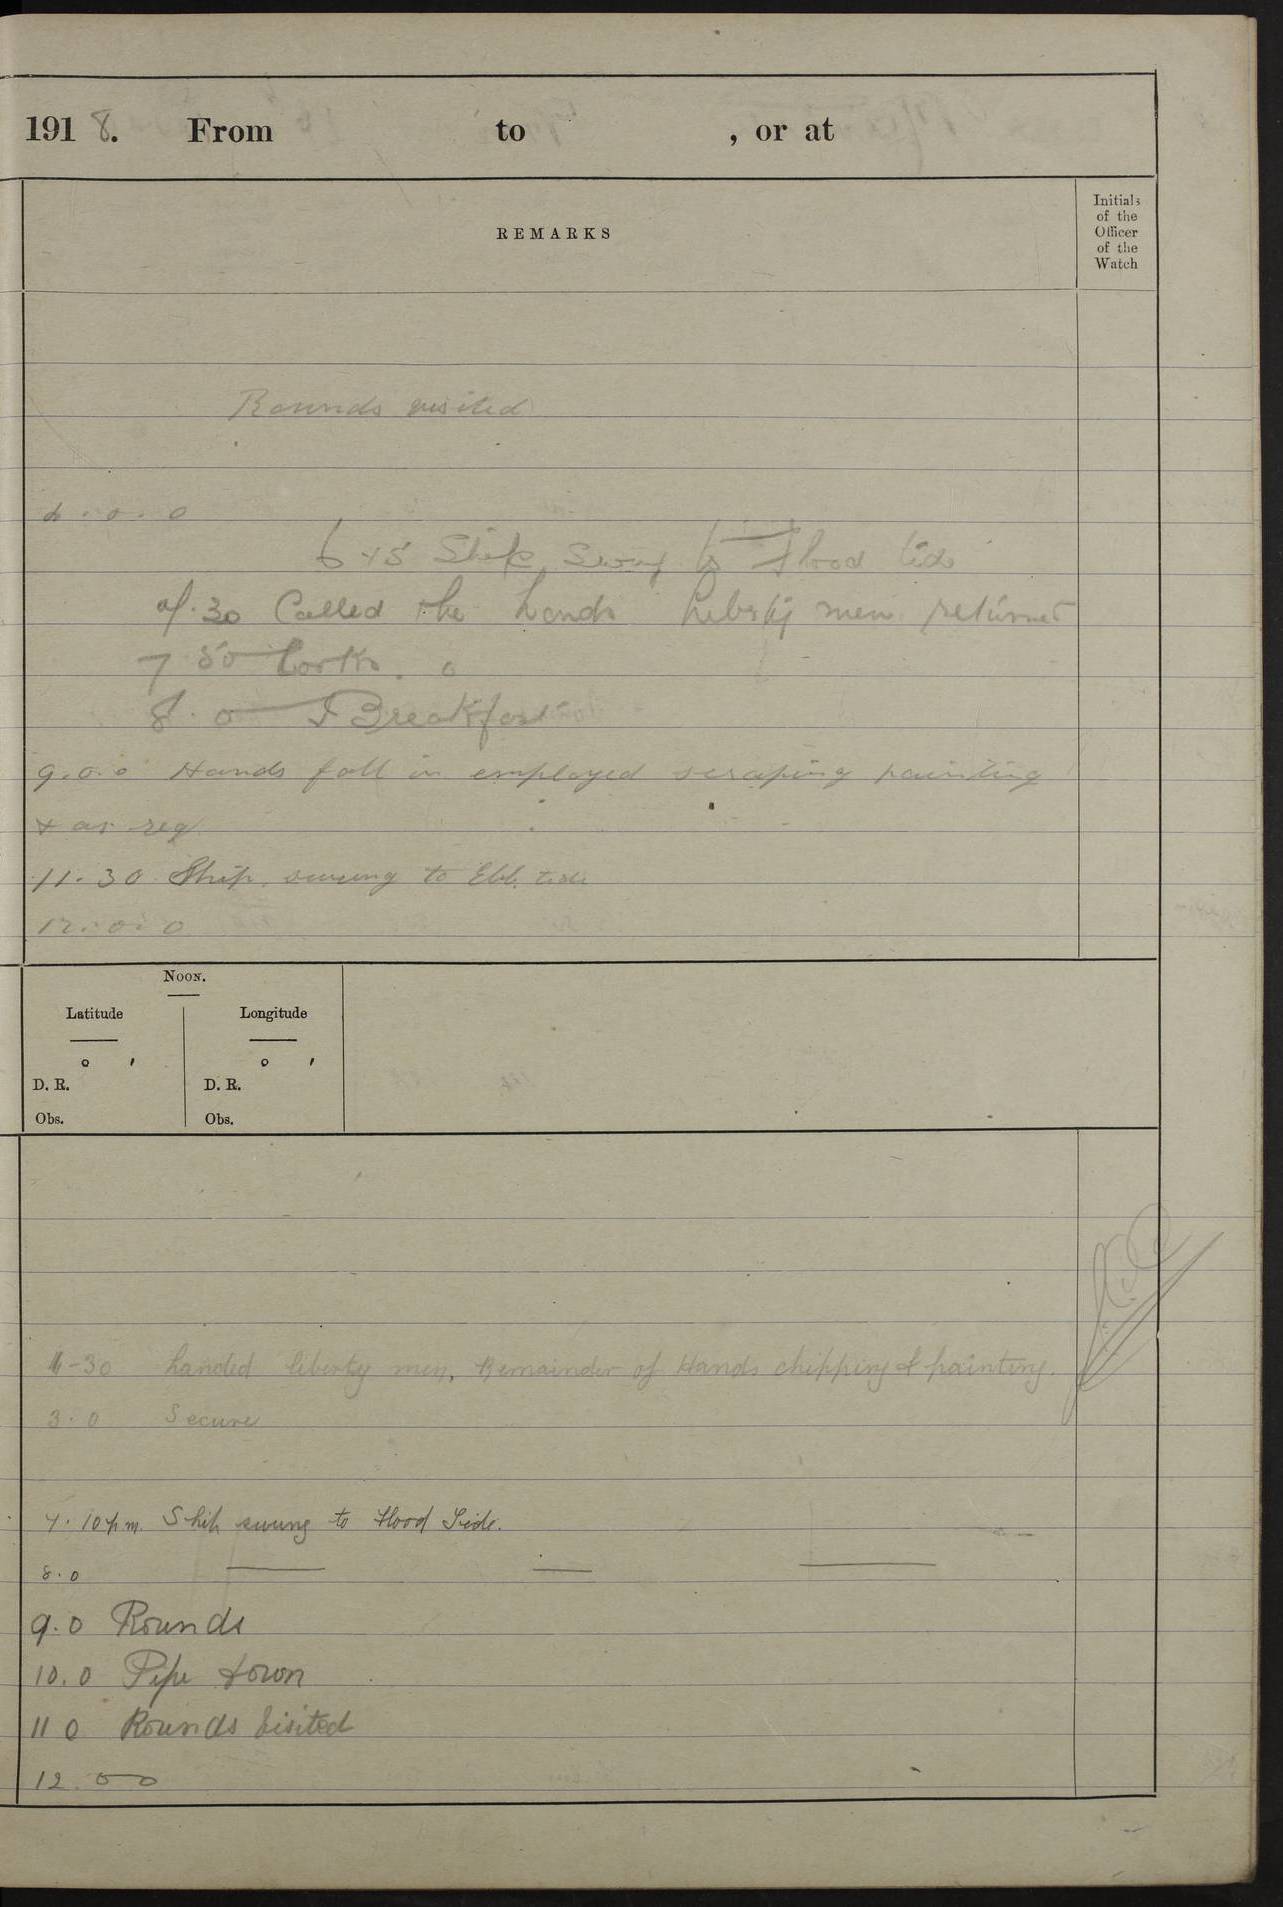 1918. From to , or at
REMARKS
Initials
of the
Officer
of the
Watch
Rounds visited
4.0.0
6 45 Ship Swung to Flood tide
30 Called the hands Liberty men returned
7 50 Cooks.
8.0 Breakfast
9.0.0 Hands fall in employed scraping painting
& as req
11.30 Ship swung to Ebb tide
12.0.0
NOON.
Latitude Longitude
° ′ ° ′
D. R. D. R.
Obs. Obs.
1-30 Landed liberty men, Remainder of Hands chipping & painting.
3.0 Secure
7.10 p.m. Ship swung to Flood Tide.
8.0
9.0 Rounds
10.0 Pipe down
11 0 Rounds Visited
12.00